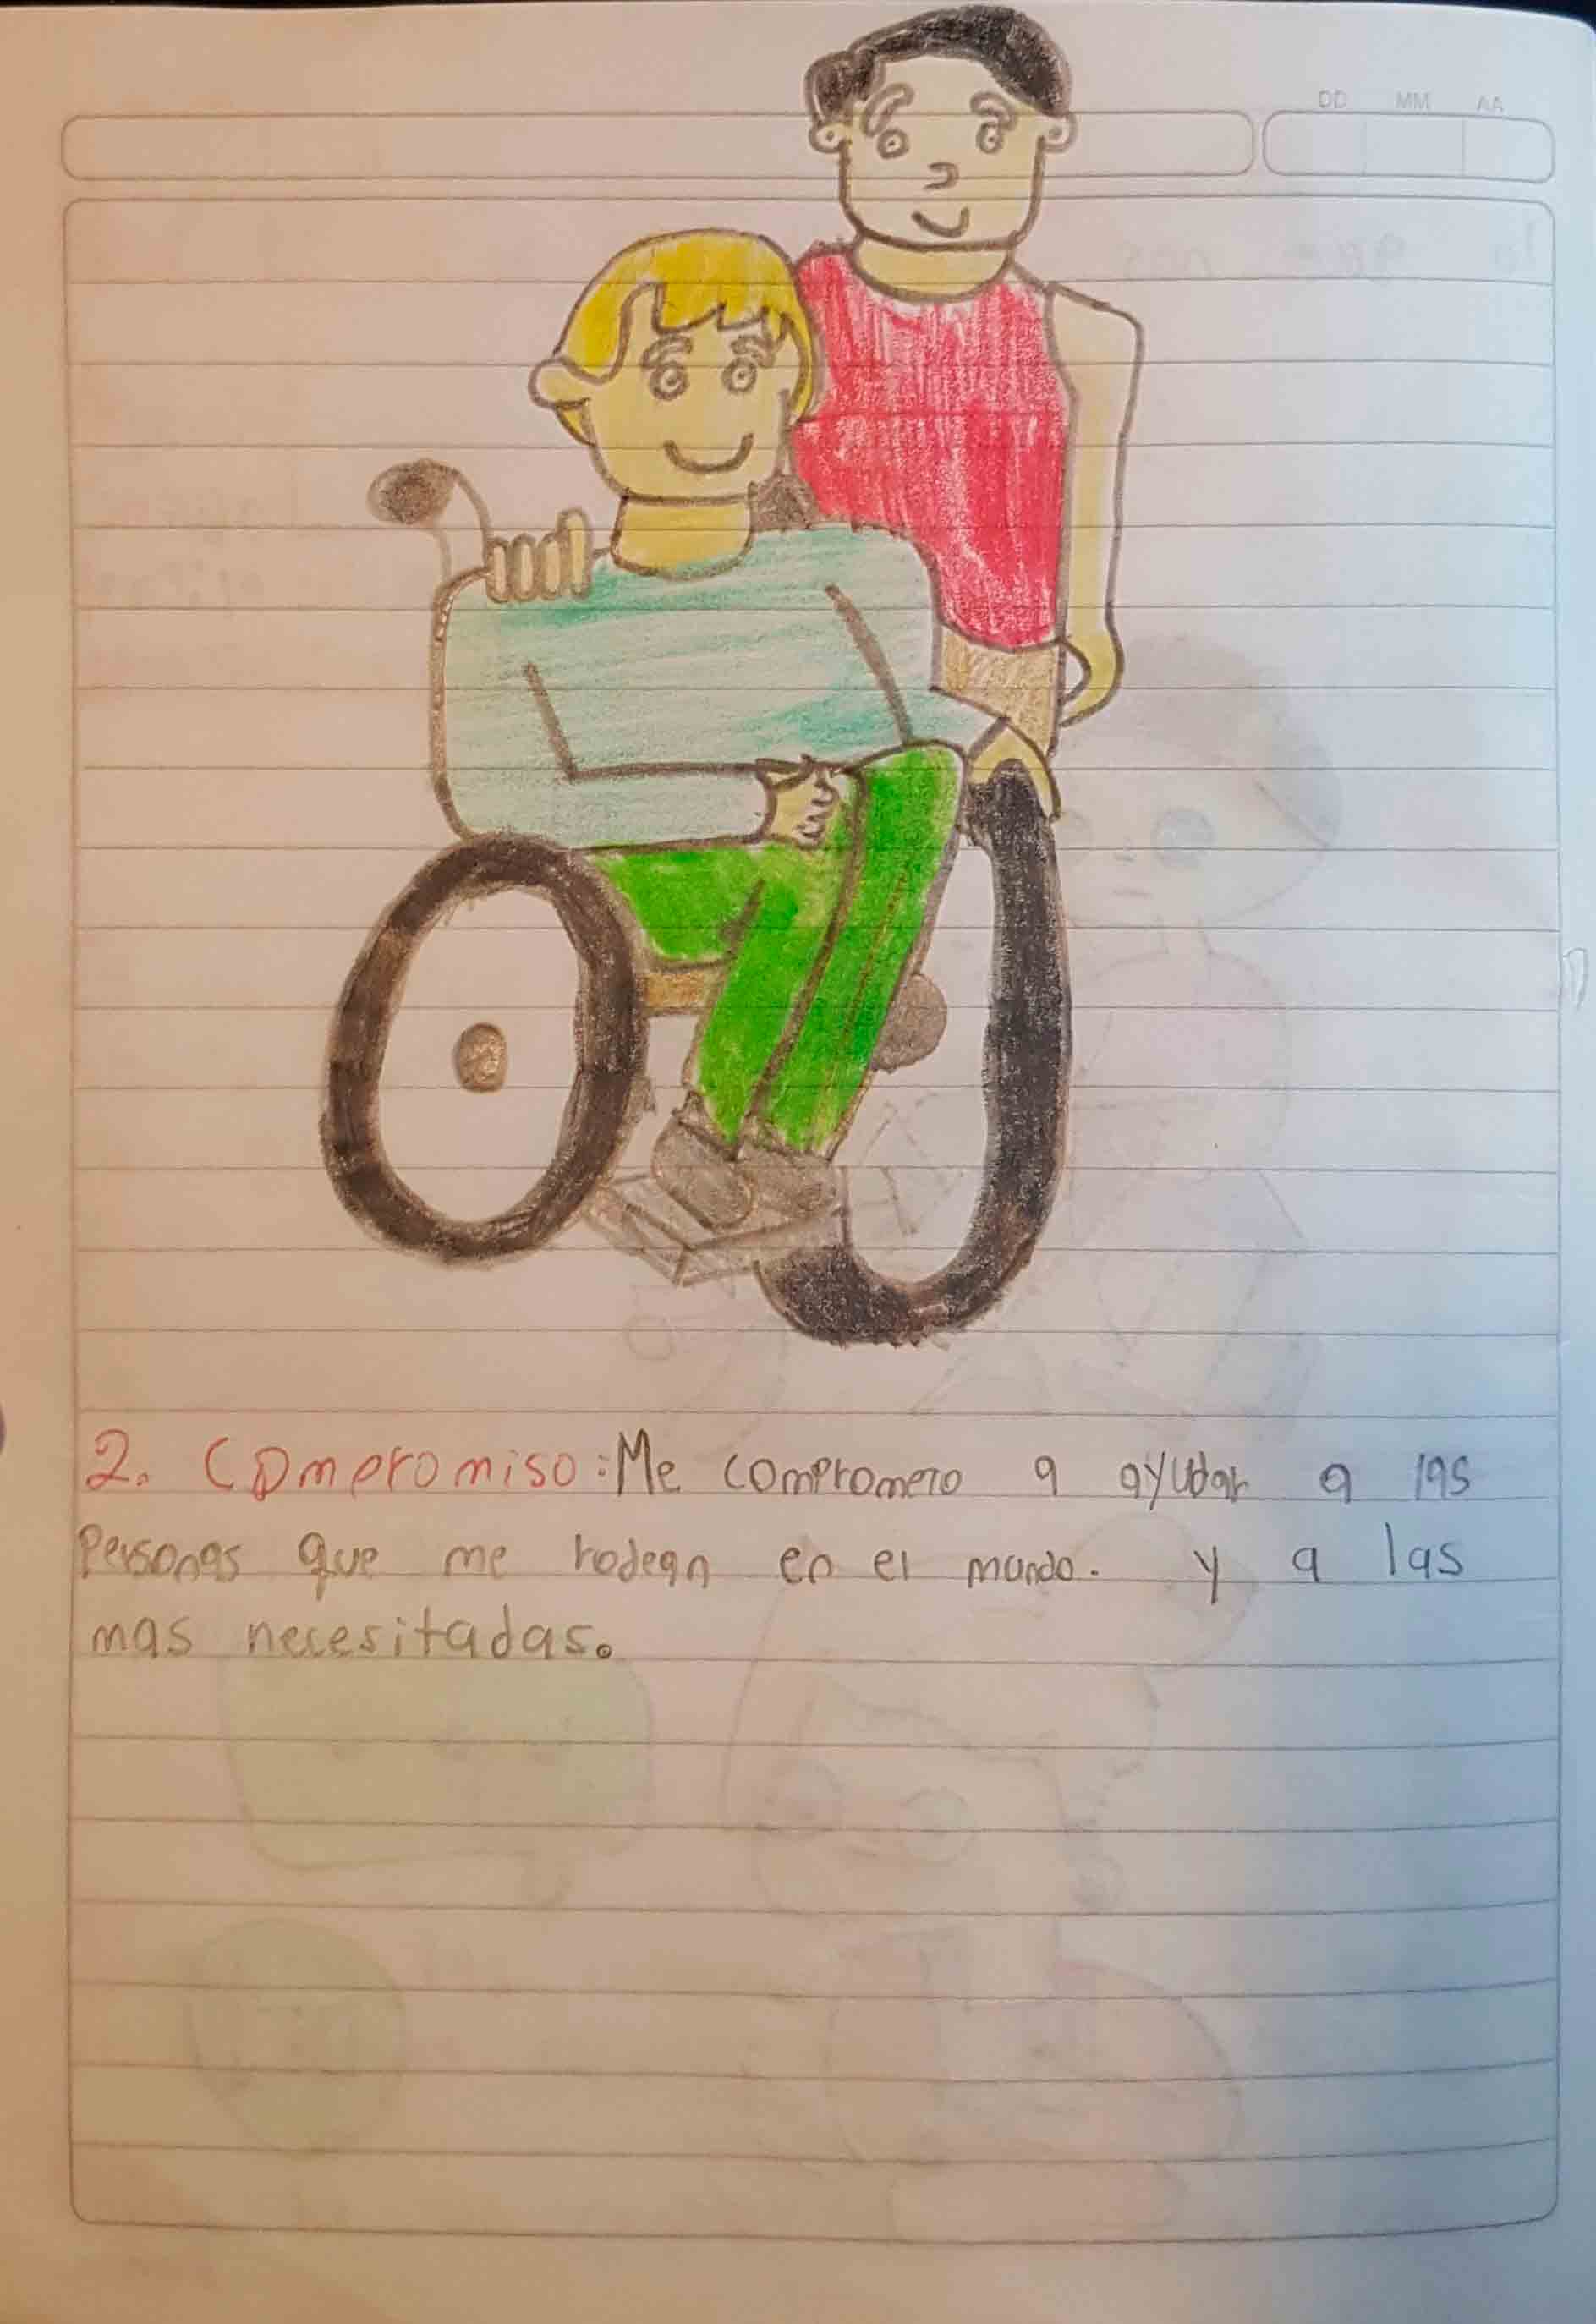 DD MM AA
2. Compromiso: Me comprometo a ayudar a las
personas que me rodean en el mundo. y a las
mas necesitadas.